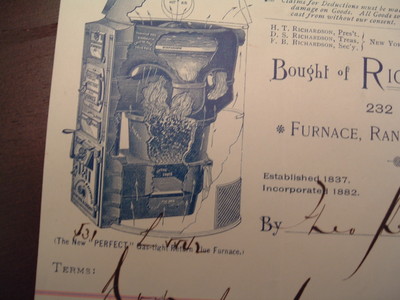 Claims for Deductions must be
damage on Goods. All Goods so
cast from without our consent.
H. T. RICHARDSON, Pres't.
D. S. RICHARDSON, Treas.
F. R. RICHARDSON, Sec'y.
NEW YORK
Bought of RIC
232
FURNACE, RAN
Established 1837.
Incorporated 1882.
By Geo
(The New "PERFECT" Gas-tight Return Flue Furnace.)
TERMS: